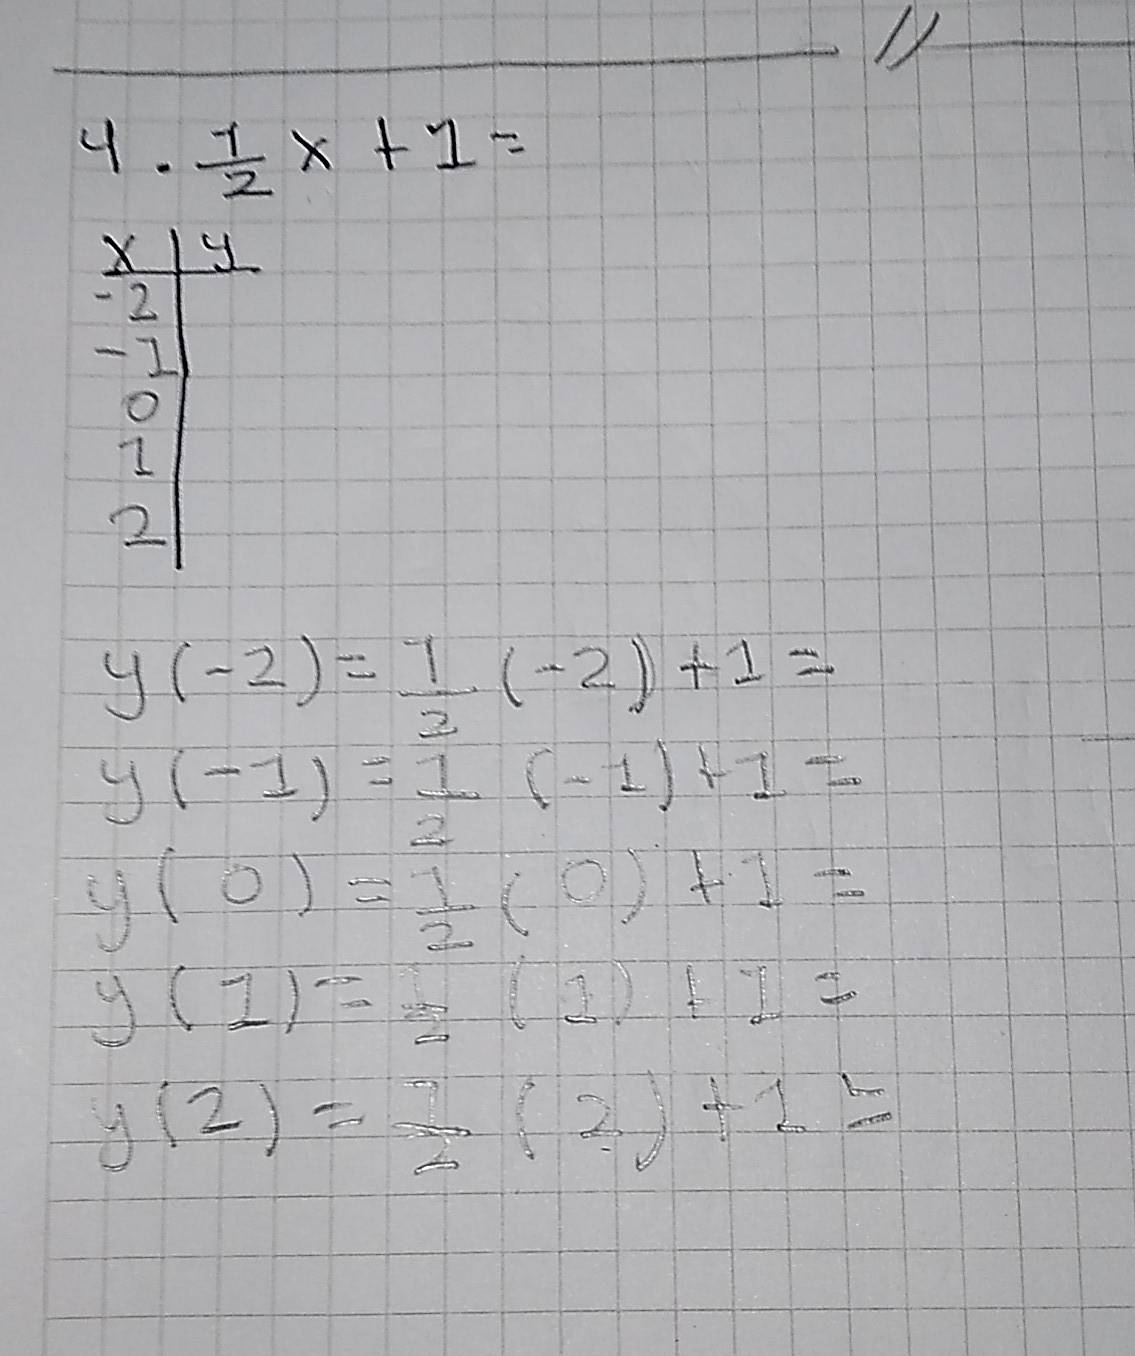 4. 1/2 x + 1 =
x | y
-2
-1
0
1
2
y(-2) = 1/2 (-2) + 1 =
y(-1) = 1/2 (-1) + 1 =
y(0) = 1/2 (0) + 1 =
y(1) = 1/2 (1) + 1 =
y(2) = 1/2 (2) + 1 =